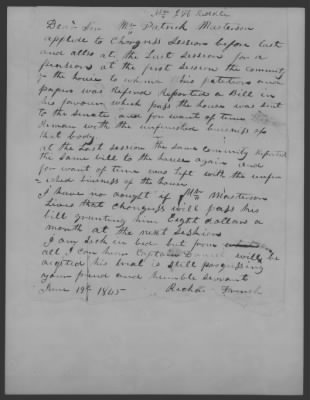 Dear Sir Mr Patrick Masterson
applied to Chongress Session before last
and allso at the Last Session for a
pension at the first session the committy
of the house to whom his petition and
papers was Referd Reported a Bill in
his favour, which past the house was sent
to the Senate and for want of time
Remain with the unfinished business of
that body
at the Last session the same committy Reported
the same bill to the house again and
for want of time was left with the unfin
ished business of the house
I have no dought if Mr Masterson
lives that Chongress will pass his
bill granting him Eight dollars a
month at the next session
I am sick in bed but from
all I can hear Captain Daniel will be
elected his trial is still progressing
your friend and humble servant
June 19th 1845 Richd French